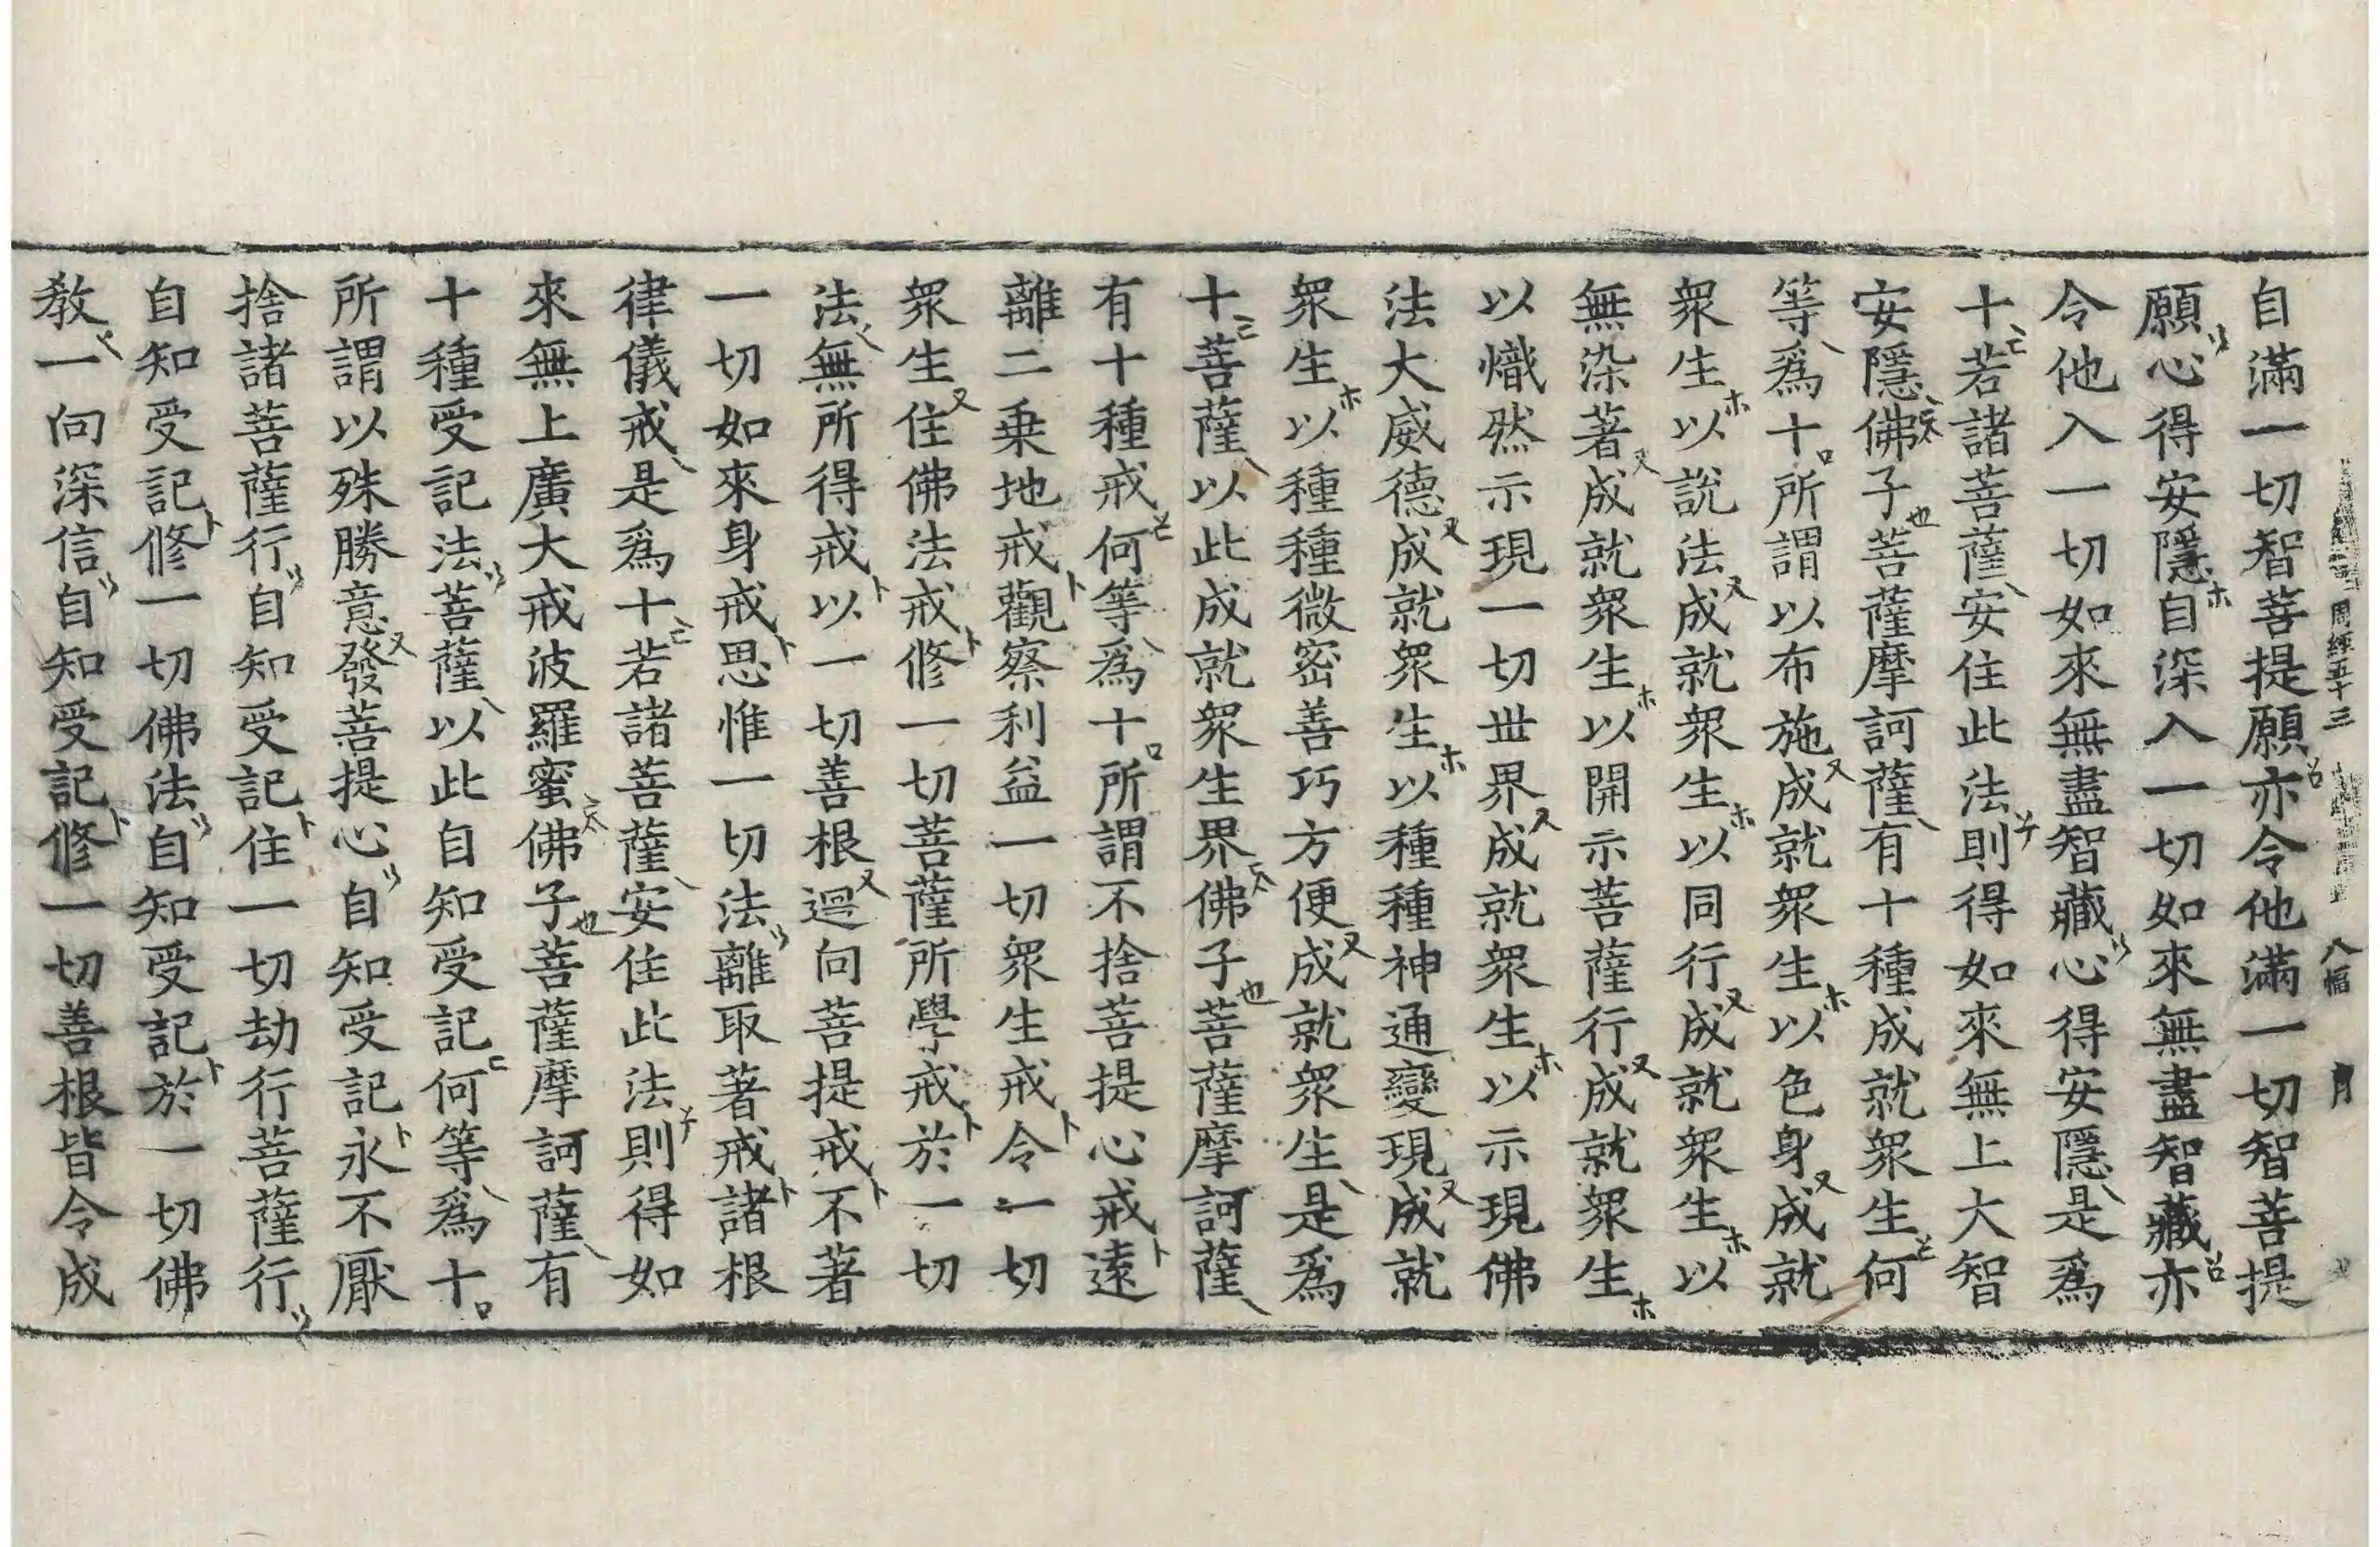 周經五十三 八幅 月
自滿一切智菩提願亦令他滿一切智菩提
願心得安隱自深入一切如來無盡智藏亦
令他入一切如來無盡智藏心得安隱是爲
十若諸菩薩安住此法則得如來無上大智
安隱佛子菩薩摩訶薩有十種成就衆生何
等爲十所謂以布施成就衆生以色身成就
衆生以說法成就衆生以同行成就衆生以
無染著成就衆生以開示菩薩行成就衆生
以熾然示現一切世界成就衆生以示現佛
法大威德成就衆生以種種神通變現成就
衆生以種種微密善巧方便成就衆生是爲
十菩薩以此成就衆生界佛子菩薩摩訶薩
有十種戒何等爲十所謂不捨菩提心戒遠
離二乗地戒觀察利益一切衆生戒令一切
衆生住佛法戒修一切菩薩所學戒於一切
法無所得戒以一切善根迴向菩提戒不著
一切如來身戒思惟一切法離取著戒諸根
律儀戒是爲十若諸菩薩安住此法則得如
來無上廣大戒波羅蜜佛子菩薩摩訶薩有
十種受記法菩薩以此自知受記何等爲十
所謂以殊勝意發菩提心自知受記永不厭
捨諸菩薩行自知受記住一切劫行菩薩行
自知受記修一切佛法自知受記於一切佛
教一向深信自知受記修一切善根皆令成